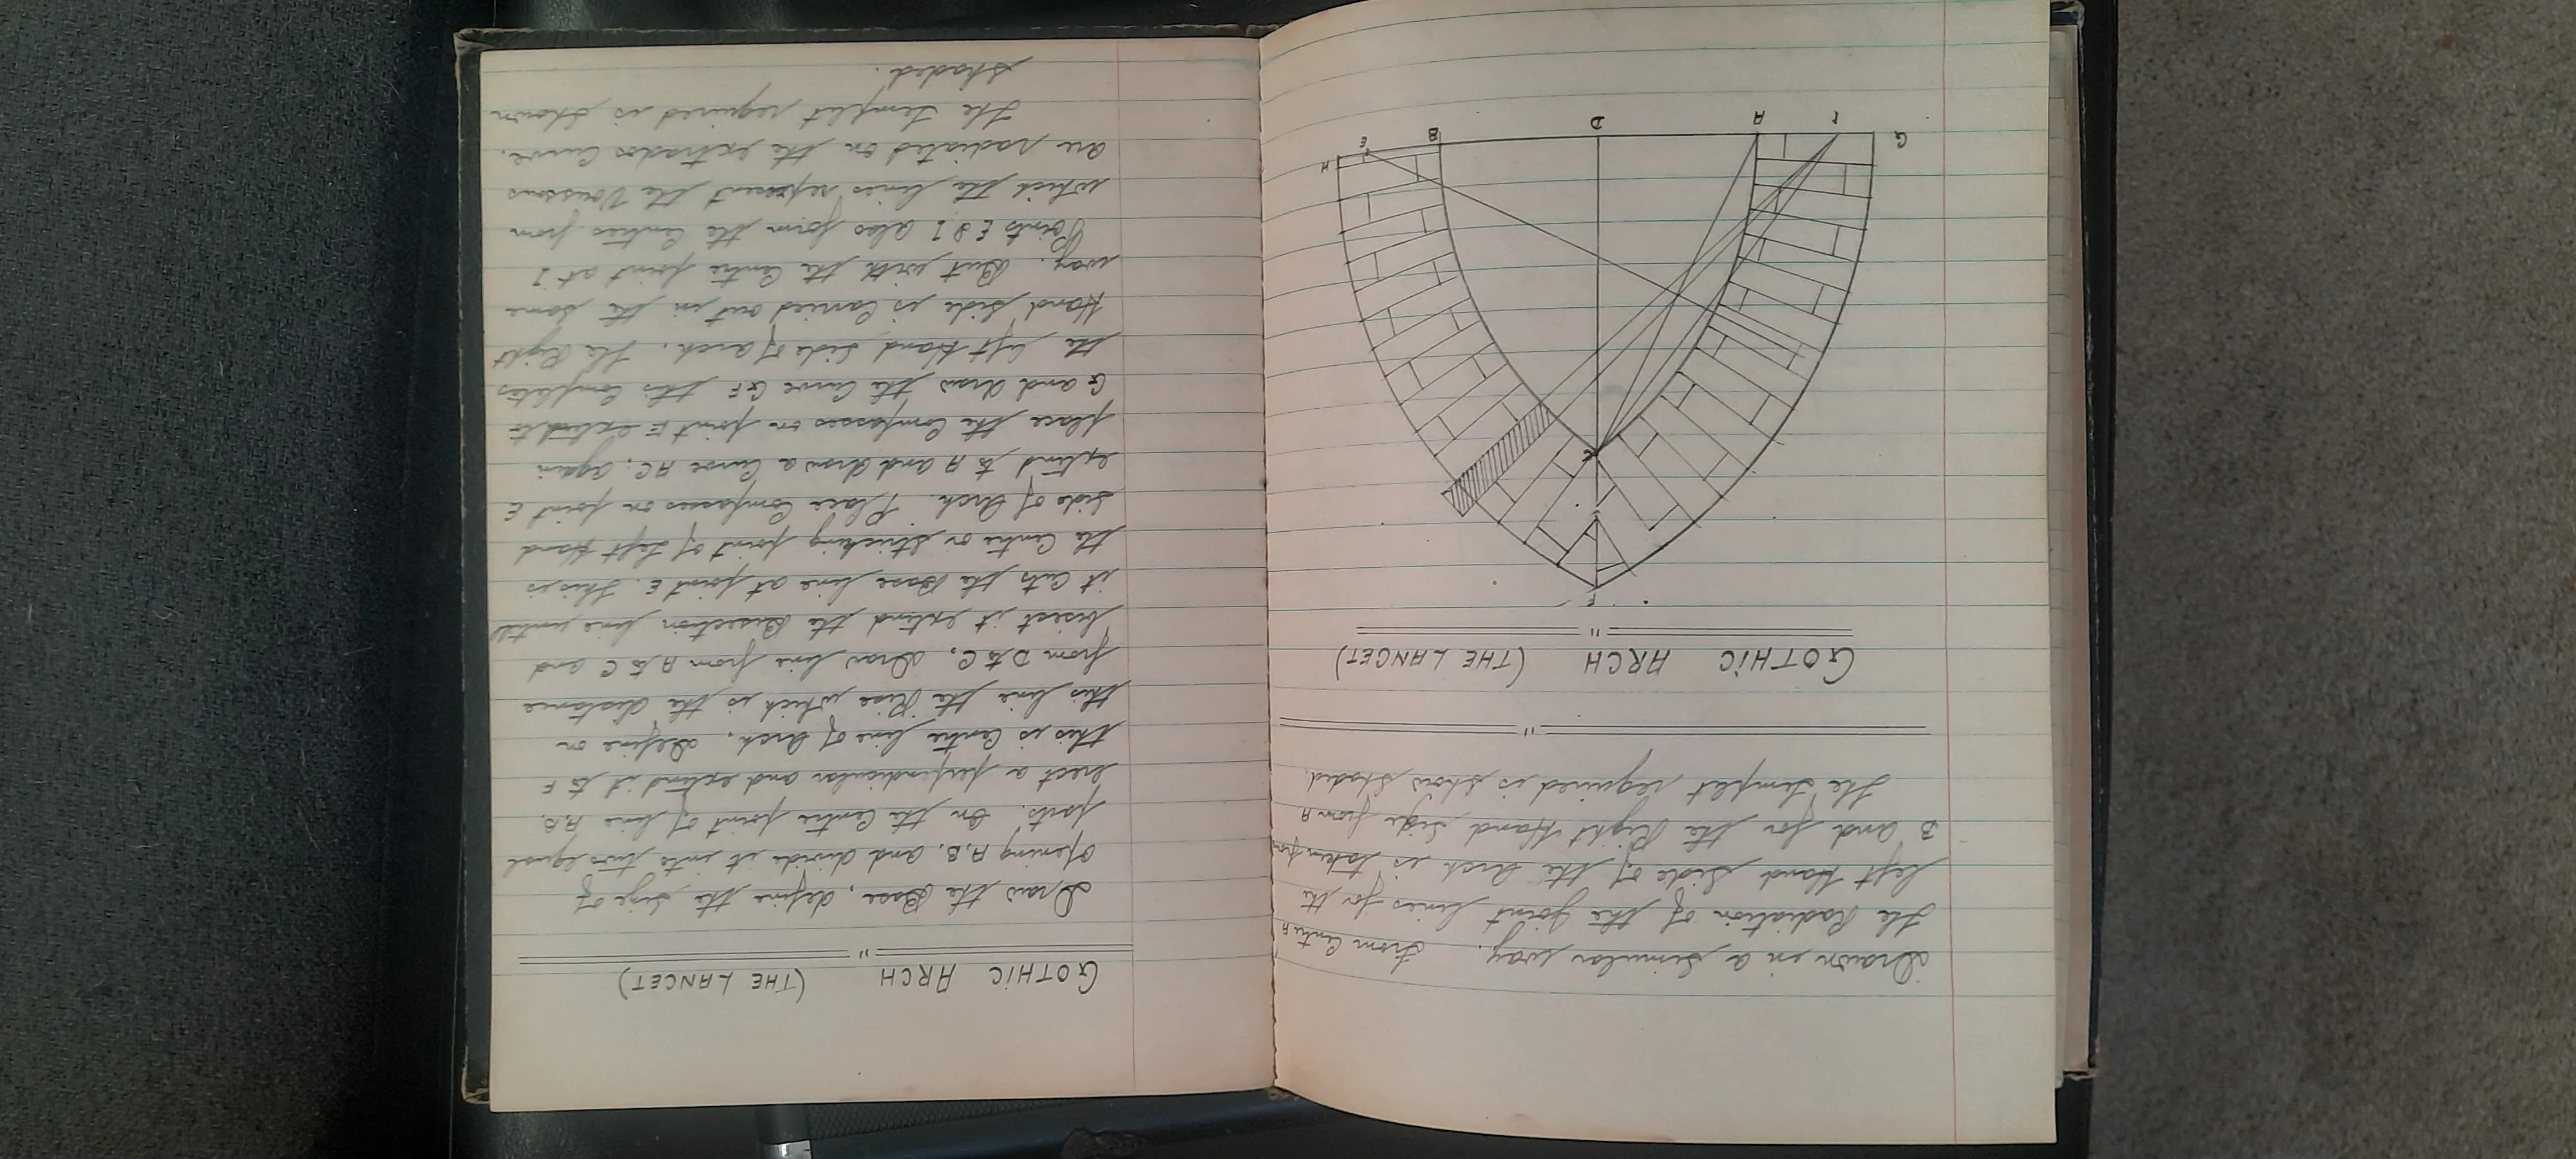 Drawn in a similar way. From Centre A
the Radiation of the joint lines for the
left Hand Side of the Arch is taken from
B and for the Right Hand Side from A
The Templet required is show shaded.
"
GOTHIC ARCH (THE LANCET)
"
F
C
H
E
B
D
A
I
G
GOTHIC ARCH (THE LANCET)
"
Draw the Base, define the size of
opening A.B. and divide it into two equal
parts. On the Centre point of line A.B.
erect a perpindicular and extend it to F
this is Centre line of Arch. Define on
this line the Rise which is the distance
from D to C, Draw line from A to C and
bisect it extend the Bisection line until
it Cuts the Base line at point E. This is
the Centre or striking point of Left Hand
side of Arch. Place Compasses on point E
extend to A and draw a Curve AC, again
place the Compasses on point E extend to
G and draw the Curve GF this Completes
the left Hand Side of arch. The Right
Hand side is Carried out in the same
way. But with the Centre point at I
Points E & I also form the Centres from
which the lines represent the Voussons
are radiated on the extrados Curve.
The Templet required is shown
shaded.